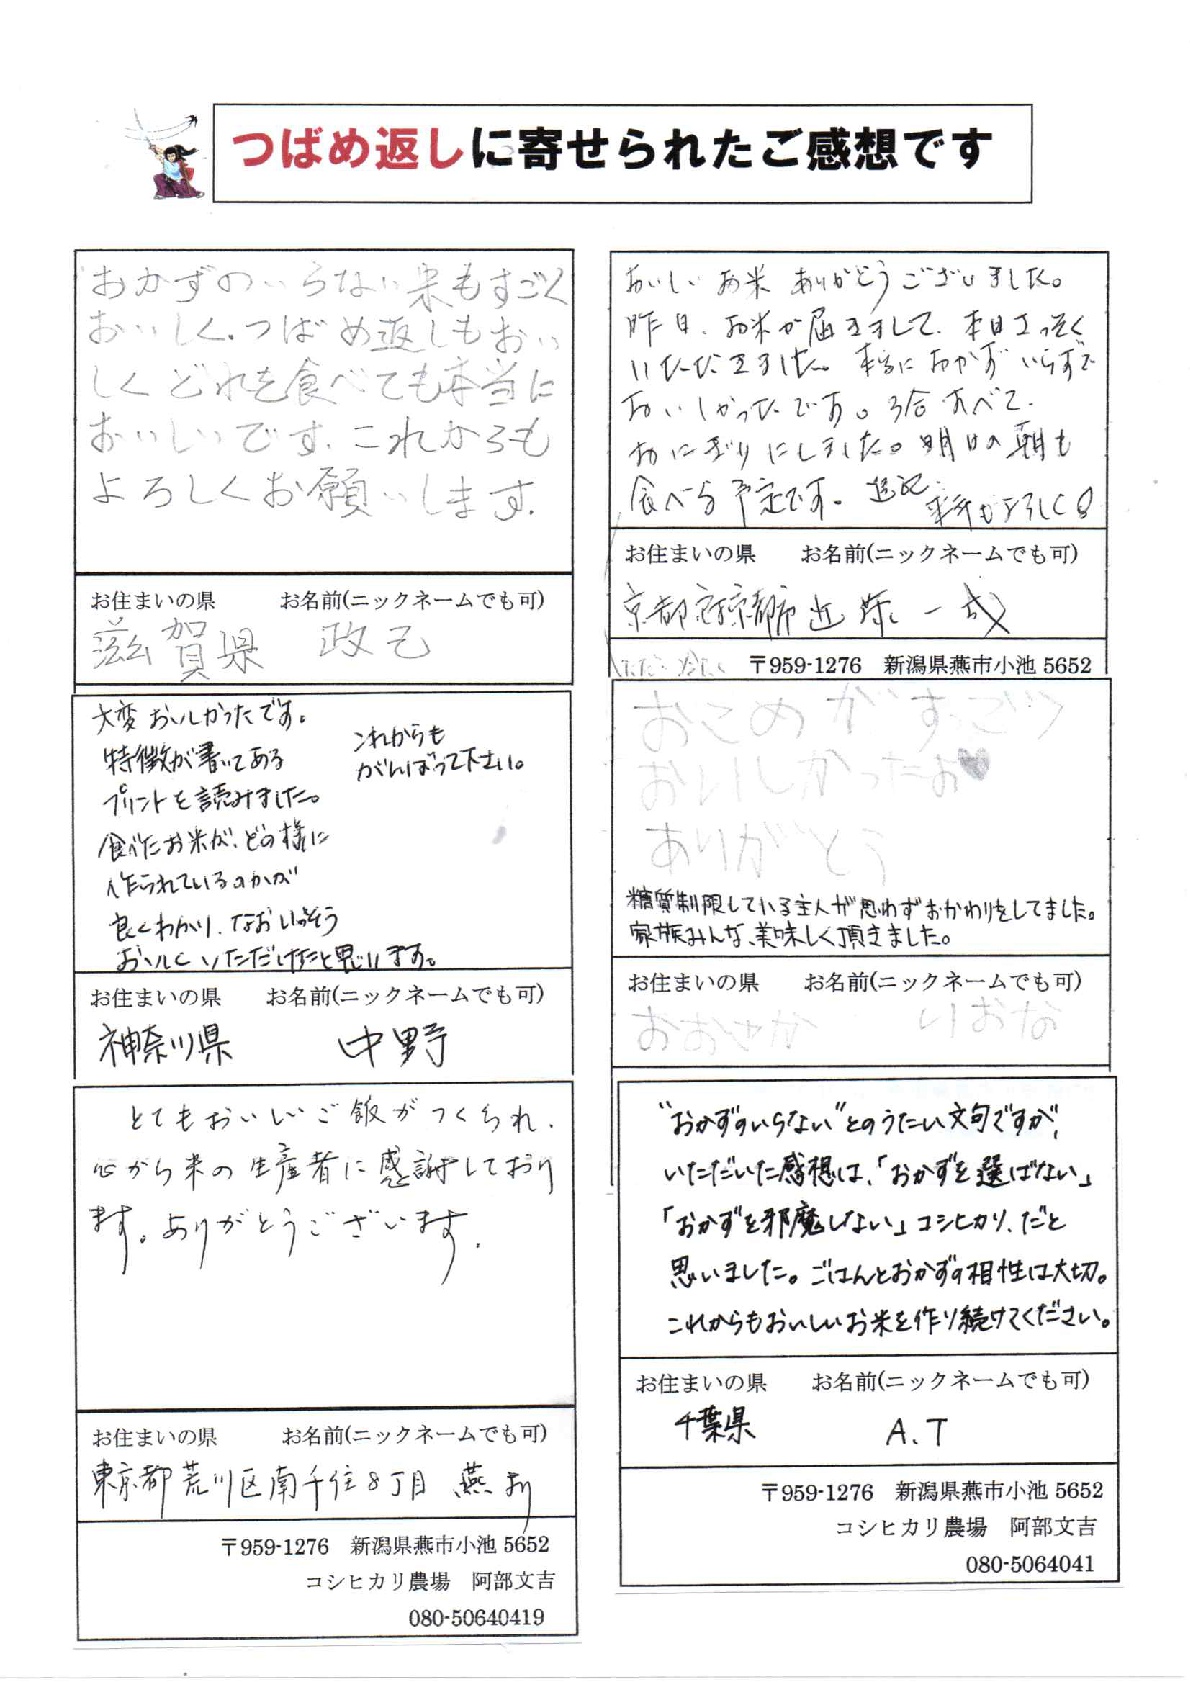 つばめ返しに寄せられたご感想です
おかずのいらない米もすごく
おいしく、つばめ返しもおい
しくどれを食べても本当に
おいしいです。これからも
よろしくお願いします。
お住まいの県 お名前(ニックネームでも可)
滋賀県 政己
おいしいお米 ありがとうございました。
昨日、お米が届きまして、本日さっそく
いただきました。本当におかずいらずで
おいしかったです。3合すべて、
おにぎりにしました。明日の朝も
食べる予定です。追記 よろしく!
お住まいの県 お名前(ニックネームでも可)
京都府京都市 近藤 一成
〒959-1276 新潟県燕市小池 5652
大変おいしかったです。
特徴が書いてある
プリントを読みました。
食べたお米が、どの様に
作られているのかが
良くわかり、なおいっそう
おいしくいただけたと思います。
これからも
がんばって下さい。
お住まいの県 お名前(ニックネームでも可)
神奈川県 中野
おこめがすっごく
おいしかったお♥
ありがとう
糖質制限している主人が思わずおかわりをしてました。
家族みんな、美味しく頂きました。
お住まいの県 お名前(ニックネームでも可)
おおさか りおな
とてもおいしいご飯がつくられ、
心から米の生産者に感謝しており
ます。ありがとうございます。
お住まいの県 お名前(ニックネームでも可)
東京都荒川区南千住8丁目 燕
〒959-1276 新潟県燕市小池 5652
コシヒカリ農場 阿部文吉
080-50640419
“おかずのいらない”とのうたい文句ですが、
いただいた感想は、「おかずを選ばない」
「おかずを邪魔しない」コシヒカリ、だと
思いました。ごはんとおかずの相性は大切。
これからもおいしいお米を作り続けてください。
お住まいの県 お名前(ニックネームでも可)
千葉県 A.T
〒959-1276 新潟県燕市小池 5652
コシヒカリ農場 阿部文吉
080-5064041